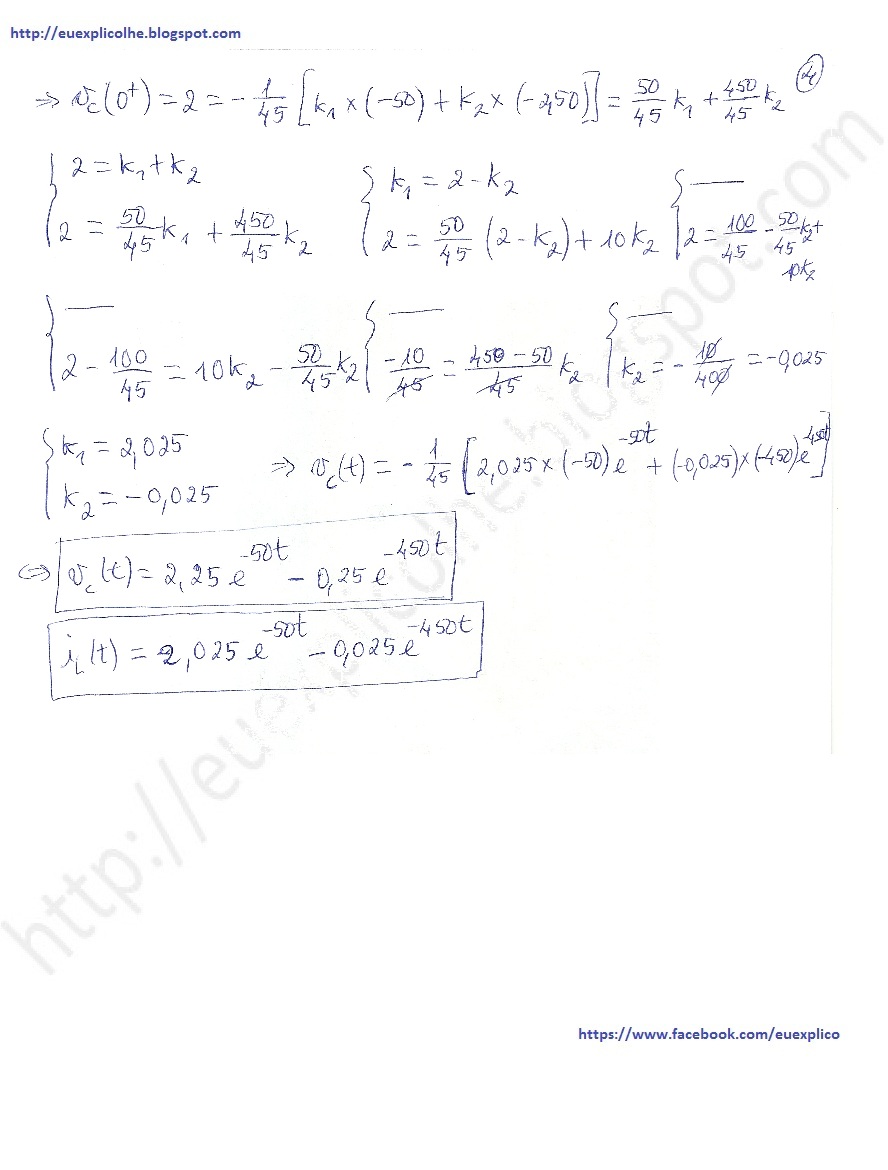 http://euexplicolhe.blogspot.com
④
⇒ v_c(0⁺) = 2 = - 1/45 [k₁ × (-50) + k₂ × (-450)] = 50/45 k₁ + 450/45 k₂
{ 2 = k₁ + k₂ { k₁ = 2 - k₂ { ——
{ 2 = 50/45 k₁ + 450/45 k₂ { 2 = 50/45 (2 - k₂) + 10k₂ { 2 = 100/45 - 50/45 k₂ + 10k₂
{ —— { —— { ——
{ 2 - 100/45 = 10k₂ - 50/45 k₂ { -10/45 = 450 - 50/45 k₂ { k₂ = - 10/400 = -0,025
{ k₁ = 2,025
{ k₂ = -0,025 ⇒ v_c(t) = - 1/45 [2,025 × (-50) e^-50t + (-0,025) × (-450) e^-450t]
⇔ v_c(t) = 2,25 e^-50t - 0,25 e^-450t
i_L(t) = 2,025 e^-50t - 0,025 e^-450t
http://euexplicolhe.blogspot.com
https://www.facebook.com/euexplico